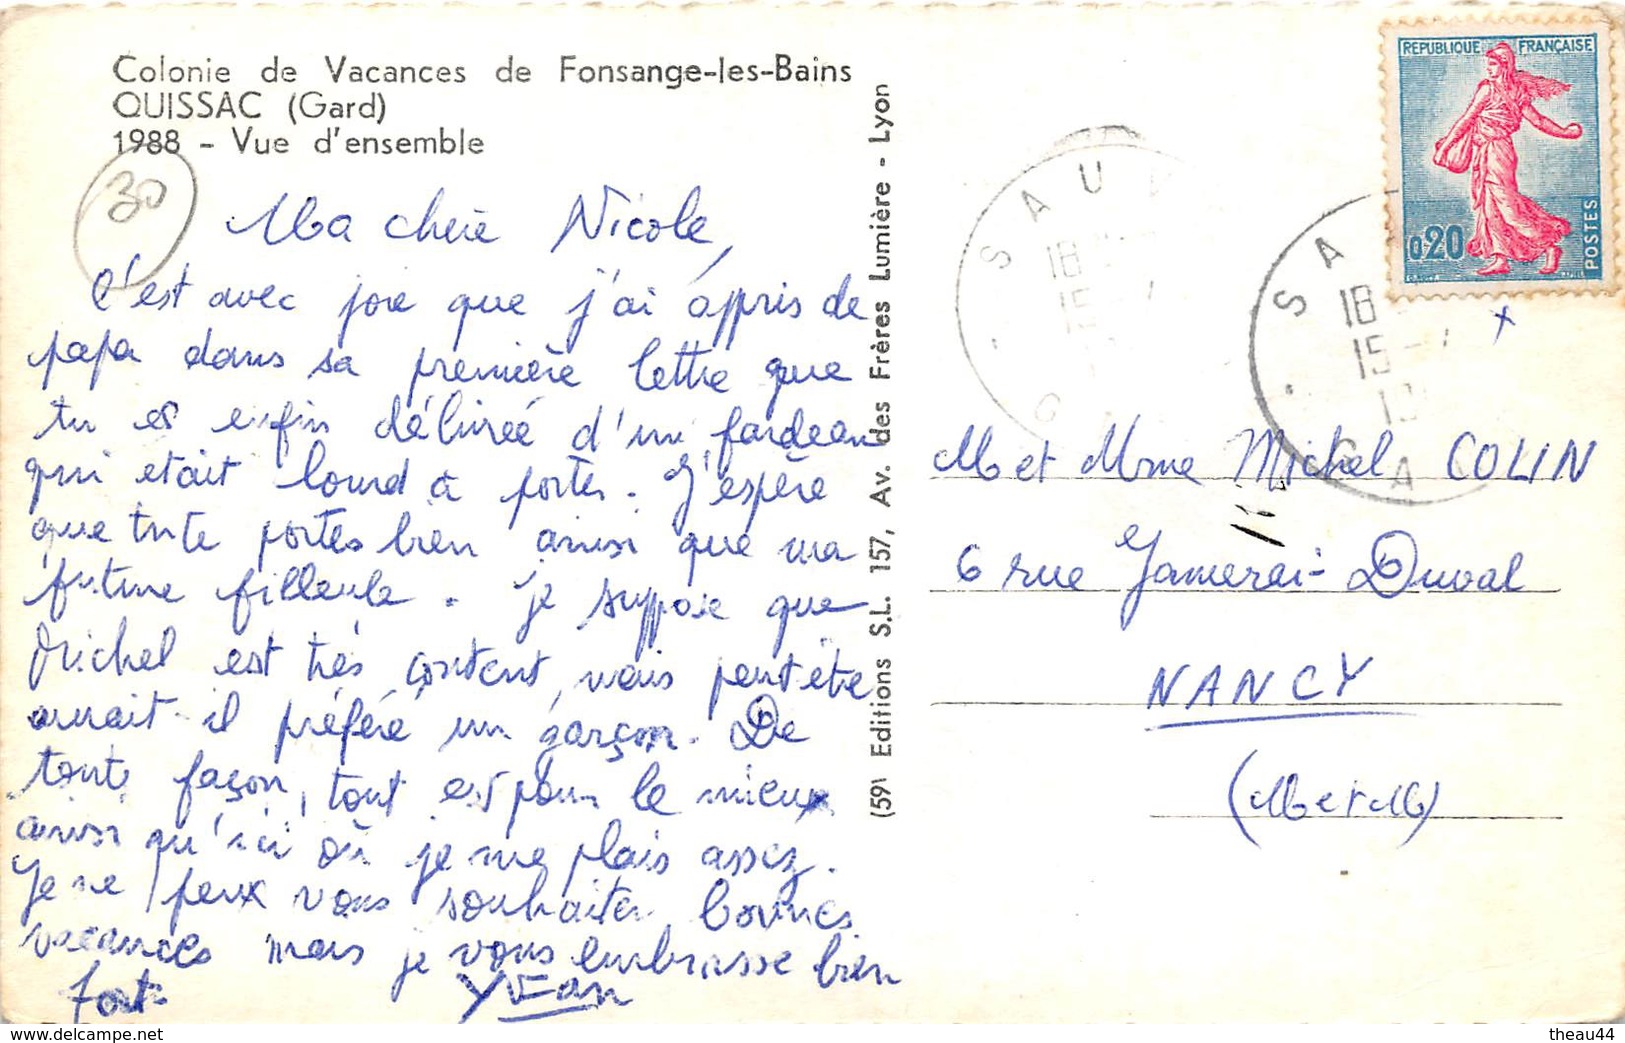 Colonie de Vacances de Fonsange-les-Bains
QUISSAC (Gard)
1988 - Vue d'ensemble
30
Ma chère Nicole,
C'est avec joie que j'ai appris de
papa dans sa première lettre que
tu es enfin délivrée d'un fardeau
qui était lourd à porter. J'espère
que tu te portes bien ainsi que ma
future filleule. Je suppose que
Michel est très content, mais peut être
aurait-il préféré un garçon. De
toute façon, tout est pour le mieux
ainsi qu'ici où je me plais assez.
Je ne peux vous souhaiter bonnes
vacances mais je vous embrasse bien
fort
YVEan
(59) Editions S.L. 157, Av. des Frères Lumière - Lyon
REPUBLIQUE FRANÇAISE
0,20
POSTES
SAU
18
15-
G
SA
18
15-7
GA
M et Mme Michel COLIN
6 rue Jamerai-Duval
NANCY
(M et M)
delcampe.net
theau44